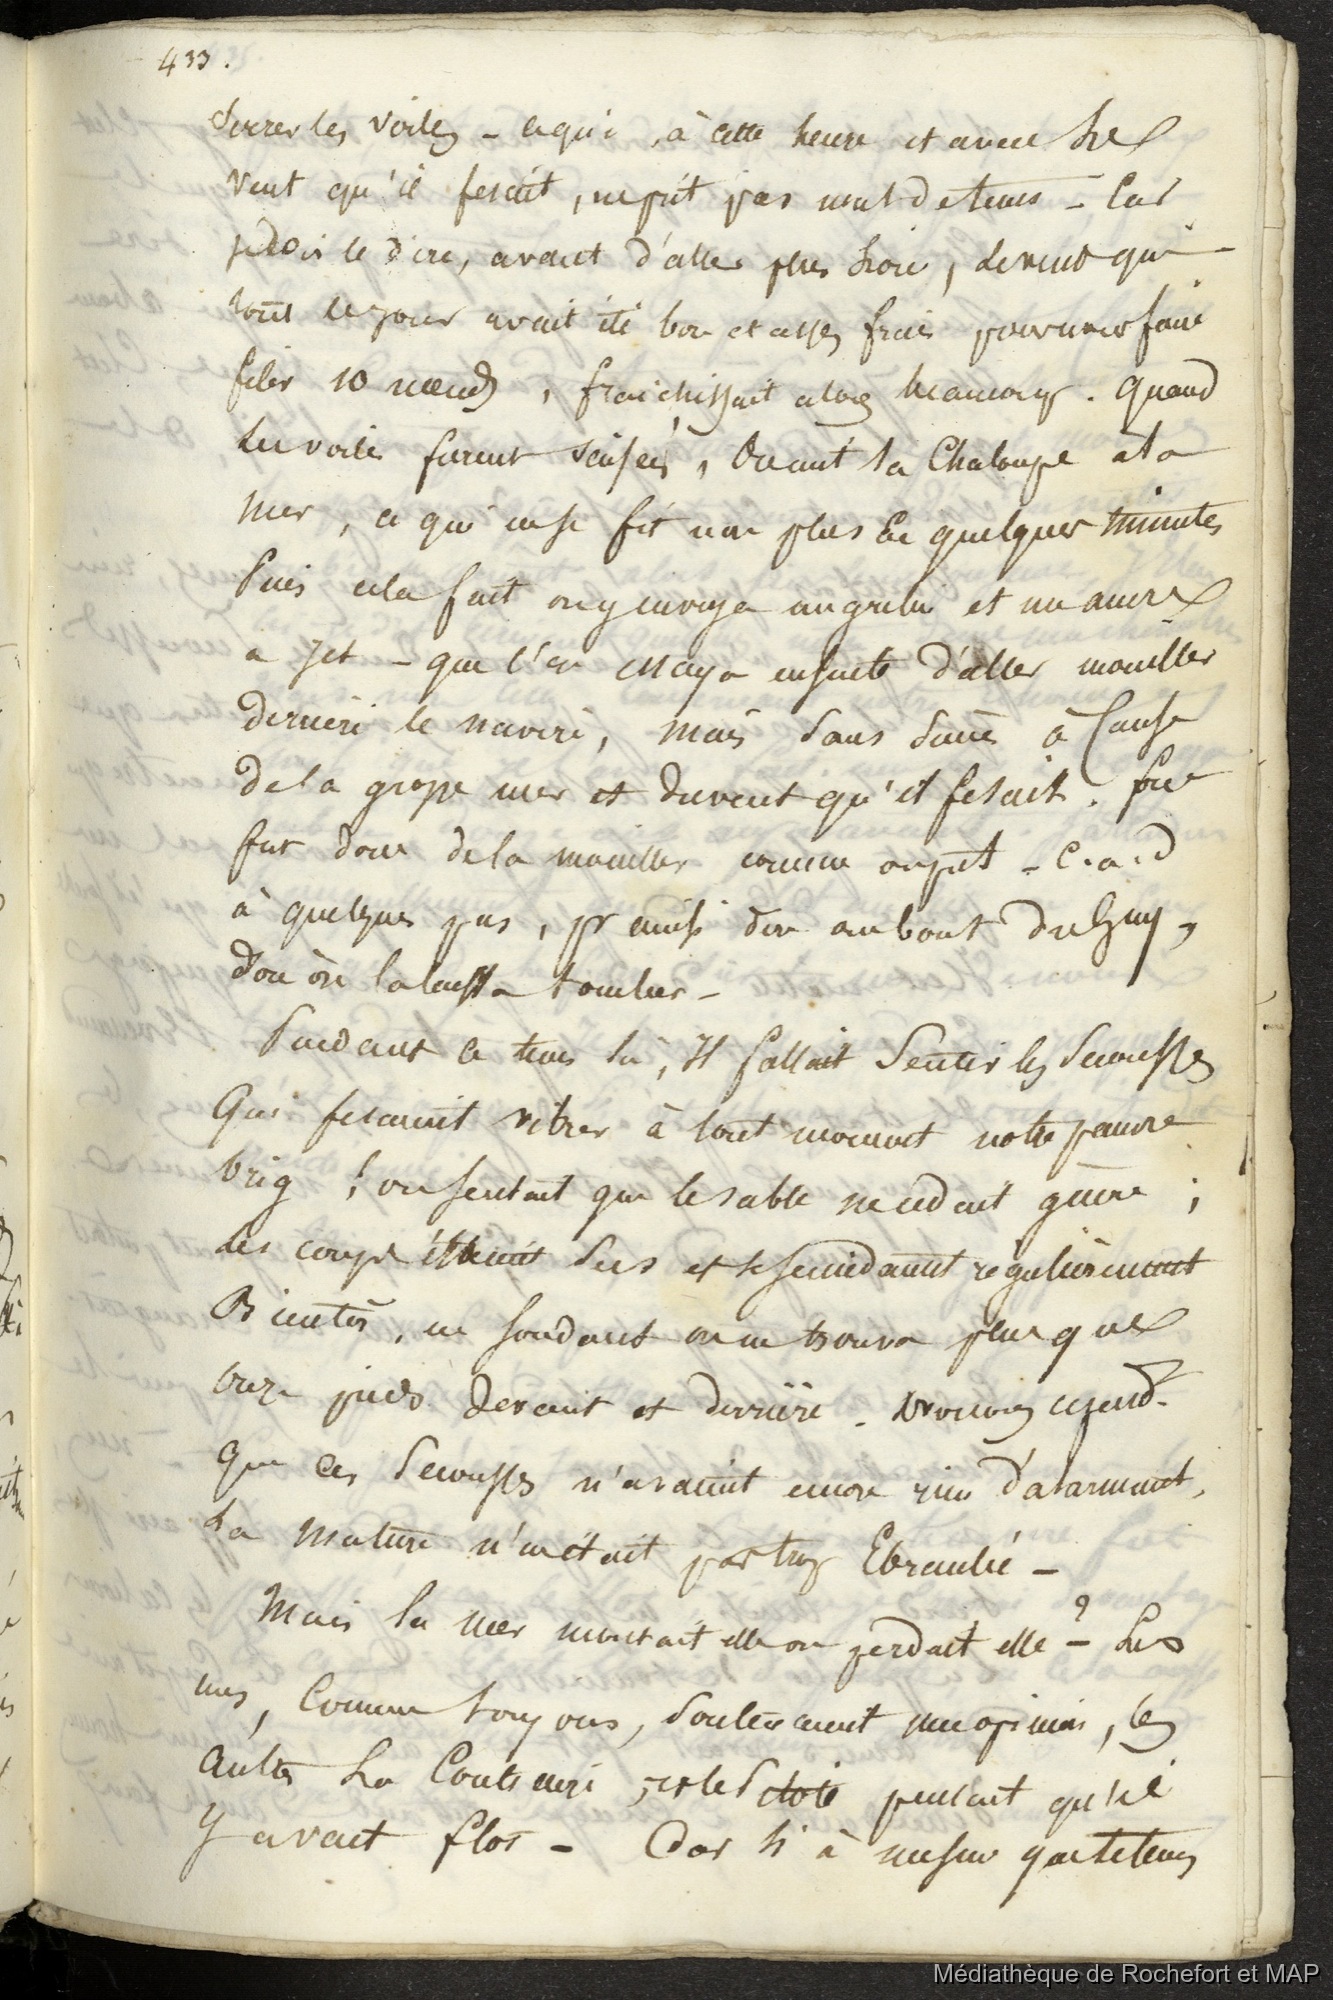 433.
Serrer les voiles - ce qui, à cette heure et avec le
vent qu'il fesait, ne prit pas mal de tems - Car
je dois le dire, avant d'aller plus loin, le vent qui
tout le jour avait été bon et assez frais pour nous faire
filer 10 nœuds, fraichissait alors beaucoup. Quand
les voiles furent serrées, On mit la Chaloupe à la
mer, ce qui ne se fit non plus En quelques minutes
Puis cela fait on y envoya un grelin et un ancre
à jet - que l'on essaya ensuite d'aller mouiller
derrière le navire, mais sans succès à Cause
de la grosse mer et du vent qu'il fesait. force
fut donc de la mouiller comme on put - C.a.d
à quelques pas, pr ainsi dire au bout du Guy,
d'où on la laissa tomber -
Pendant ce tems là, Il fallait Sentir les Secousses
Qui fesaient vibrer à tout moment notre pauvre
brig ! on sentait que le sable ne cedait guère ;
Les coups étaient secs et se succedaient régulièrement
Bientôt, en sondant on ne trouva plus que
onze pieds devant et derrière. Avouons cepend.
que ces Secousses n'avaient encore rien d'alarmant,
La mature n'en était pas trop Ebranlée -
Mais la mer montait elle ou perdait elle - ? Les
uns, Comme toujours, soutenaient une opinion, les
autres La Contraire, et le Pilote pensait qu'il
y avait flot - Car si à mesure que le tems
Médiathèque de Rochefort et MAP